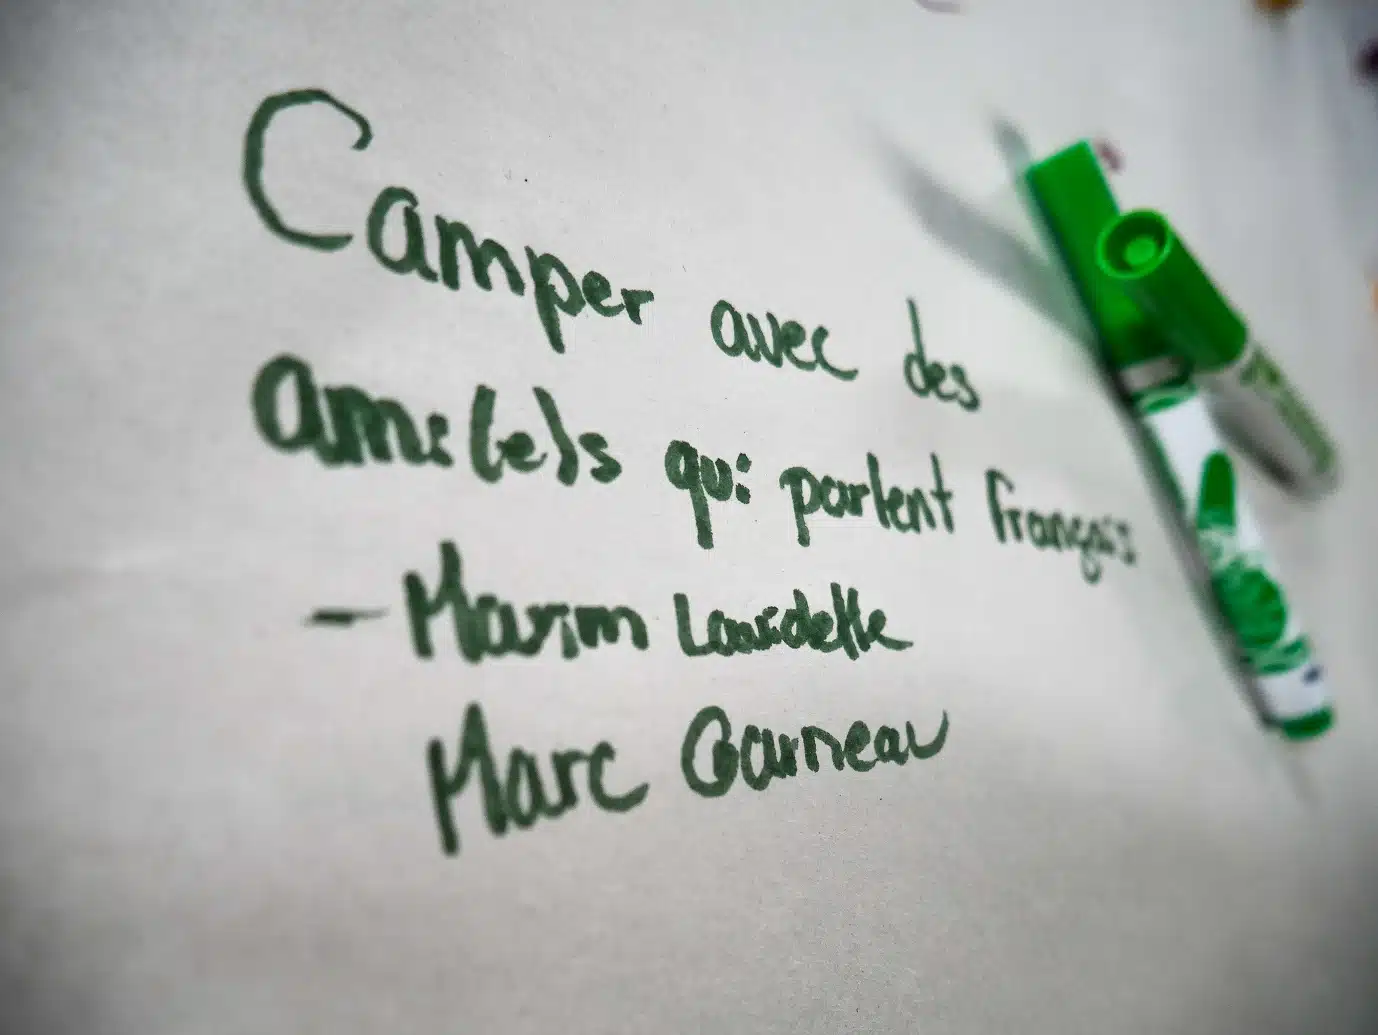 Camper avec des
ami(e)s qui parlent français
- Marim Laurdelle
Marc Garneau